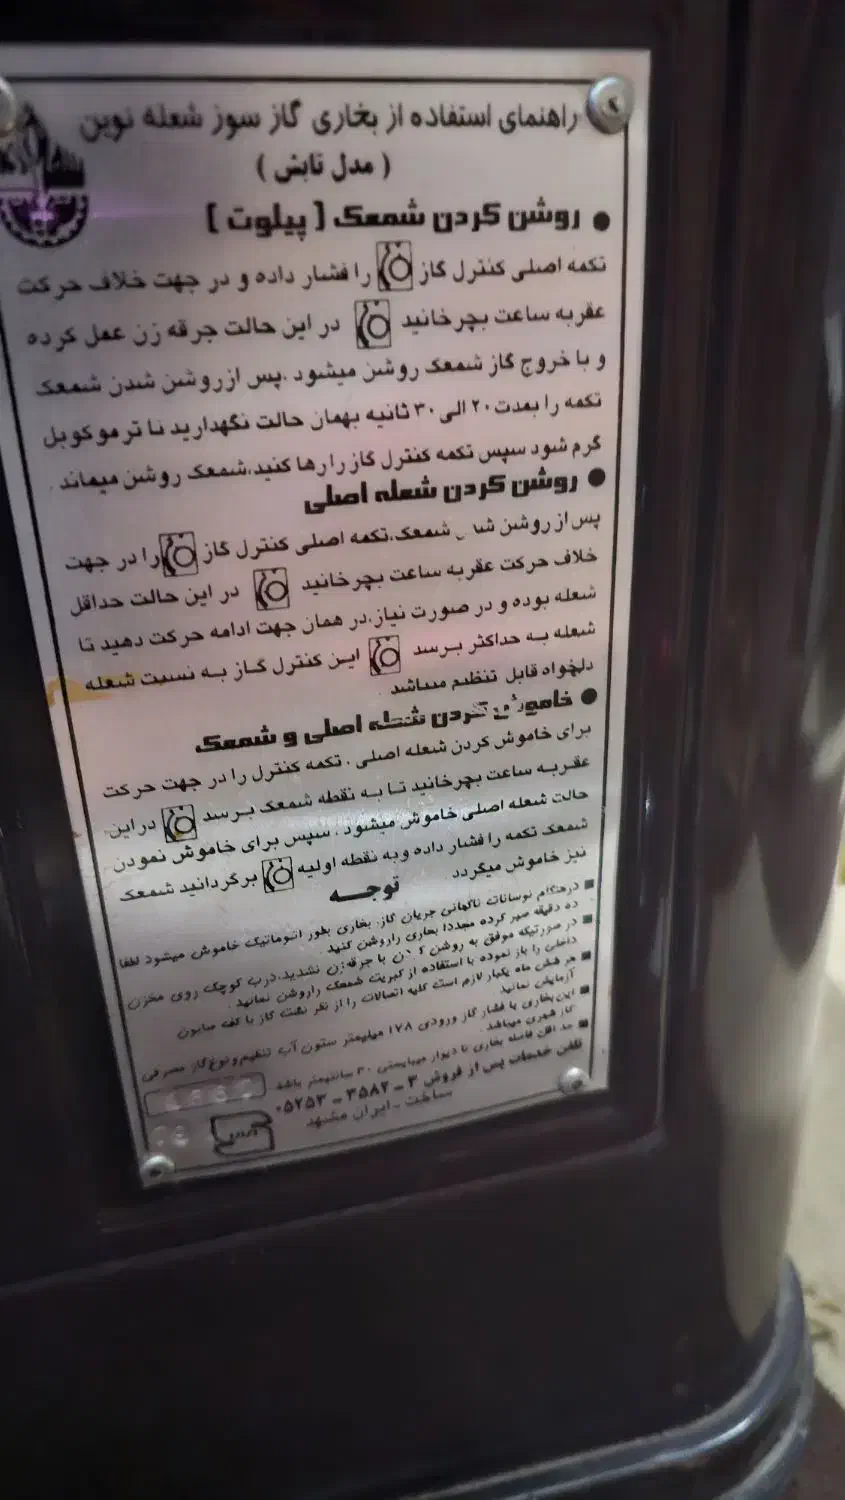 راهنمای استفاده از بخاری گاز سوز شعله نوین
( مدل تابش )
● روشن کردن شمعک [ پیلوت ]
تکمه اصلی کنترل گاز را فشار داده و در جهت خلاف حرکت
عقربه ساعت بچرخانید در این حالت جرقه زن عمل کرده
و با خروج گاز شمعک روشن میشود .پس ازروشن شدن شمعک
تکمه را بمدت ۲۰ الی ۳۰ ثانیه بهمان حالت نگهدارید تا ترموکوبل
گرم شود سپس تکمه کنترل گاز را رها کنید،شمعک روشن میماند .
● روشن کردن شعله اصلی
پس از روشن شمعک،تکمه اصلی کنترل گاز را در جهت
خلاف حرکت عقربه ساعت بچرخانید در این حالت حداقل
شعله بوده و در صورت نیاز،در همان جهت ادامه حرکت دهید تا
شعله به حداکثر برسد این کنترل گاز به نسبت شعله
دلخواه قابل تنظیم میباشد .
● خاموش کردن شعله اصلی و شمعک
برای خاموش کردن شعله اصلی ، تکمه کنترل را در جهت حرکت
عقربه ساعت بچرخانید تا به نقطه شمعک برسد در این
حالت شعله اصلی خاموش میشود . سپس برای خاموش نمودن
شمعک تکمه را فشار داده و به نقطه اولیه برگردانید شمعک
نیز خاموش میگردد
توجه
■ درهنگام نوسانات ناگهانی جریان گاز، بخاری بطور اتوماتیک خاموش میشود لطفا
ده دقیقه صبر کرده مجددا بخاری راروشن کنید .
■ در صورتیکه موفق به روشن کردن با جرقه زن نشدید،درب کوچک روی مخزن
داخلی را باز نموده با استفاده از کبریت شمعک راروشن نمائید .
■ هر شش ماه یکبار لازم است کلیه اتصالات را از نظر نشت گاز با کف صابون
آزمایش نمائید
■ این بخاری با فشار گاز ورودی ۱۷۸ میلیمتر ستون آب تنظیم و نوع گاز مصرفی
گاز شهری میباشد .
■ حداقل فاصله بخاری تا دیوار میبایستی ۳۰ سانتیمتر باشد
تلفن خدمات پس از فروش ۳ - ۳۵۸۲ - ۰۵۲۵۳
ساخت - ایران مشهد